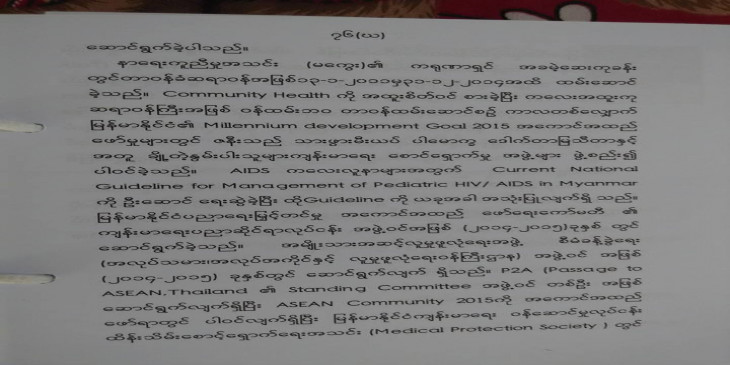 ၇၆(ဃ)
ဆောင်ရွက်ခဲ့ပါသည်။
နာရေးကူညီမှုအသင်း (မကွေး)၏ ကရုဏာရှင် အခမဲ့ဆေးကုခန်း
တွင်တာဝန်ခံဆရာဝန်အဖြစ်၁၃-၁-၂၀၁၁မှ၃၁-၁၂-၂၀၁၄အထိ ထမ်းဆောင်
ခဲ့သည်။ Community Health ကို အထူးစိတ်ဝင် စားခဲ့ပြီး ကလေးအထူးကု
ဆရာဝန်ကြီးအဖြစ် ဝန်ထမ်းဘဝ တာဝန်ထမ်းဆောင်စဉ် ကာလတစ်လျှောက်
မြန်မာနိုင်ငံ၏ Millennium development Goal 2015 အကောင်အထည်
ဖော်မှုများတွင် ဇနီးသည် သားဖွားမီးယပ် ပါမောက္ခ ဒေါက်တာမြသီတာနှင့်
အတူ မျိုးတွဲနွမ်းပါးသူများကျန်းမာရေး စောင့်ရှောက်မှု အဖွဲ့များ ဖွဲ့စည်း၍
ပါဝင်ခဲ့သည်။ AIDS ကလေးလူနာများအတွက် Current National
Guideline for Management of Pediatric HIV/ AIDS in Myanmar
ကို ဦးဆောင် ရေးဆွဲခဲ့ပြီး ထိုGuideline ကို ယခုအခါ အသုံးပြုလျက်ရှိ သည်။
မြန်မာနိုင်ငံပညာရေးမြှင့်တင်မှု အကောင်အထည် ဖော်ရေးကော်မတီ ၏
ကျန်းမာရေးပညာဆိုင်ရာလုပ်ငန်း အဖွဲ့ဝင်အဖြစ် (၂၀၁၄-၂၀၁၅)ခုနှစ် တွင်
ဆောင်ရွက်ခဲ့သည်။ အမျိုးသားအဆင့်လူမှုဖူလုံရေးအဖွဲ့ စီမံခန့်ခွဲရေး
(အလုပ်သမား၊အလုပ်အကိုင်နှင့် လူမှုဖူလုံရေးဝန်ကြီးဌာန) အဖွဲ့ဝင် အဖြစ်
(၂၀၁၄-၂၀၁၅) ခုနှစ်တွင် ဆောင်ရွက်လျက် ရှိသည်။ P2A (Passage to
ASEAN,Thailand ၏ Standing Committee အဖွဲ့ဝင် တစ်ဦး အဖြစ်
ဆောင်ရွက်လျက်ရှိပြီး ASEAN Community 2015ကို အကောင်အထည်
ဖော်ရာတွင် ပါဝင်လျက်ရှိပြီး မြန်မာနိုင်ငံကျန်းမာရေး ဝန်ဆောင်မှုလုပ်ငန်း
ထိန်းသိမ်းစောင့်ရှောက်ရေးအသင်း (Medical Protection Society ) တွင်